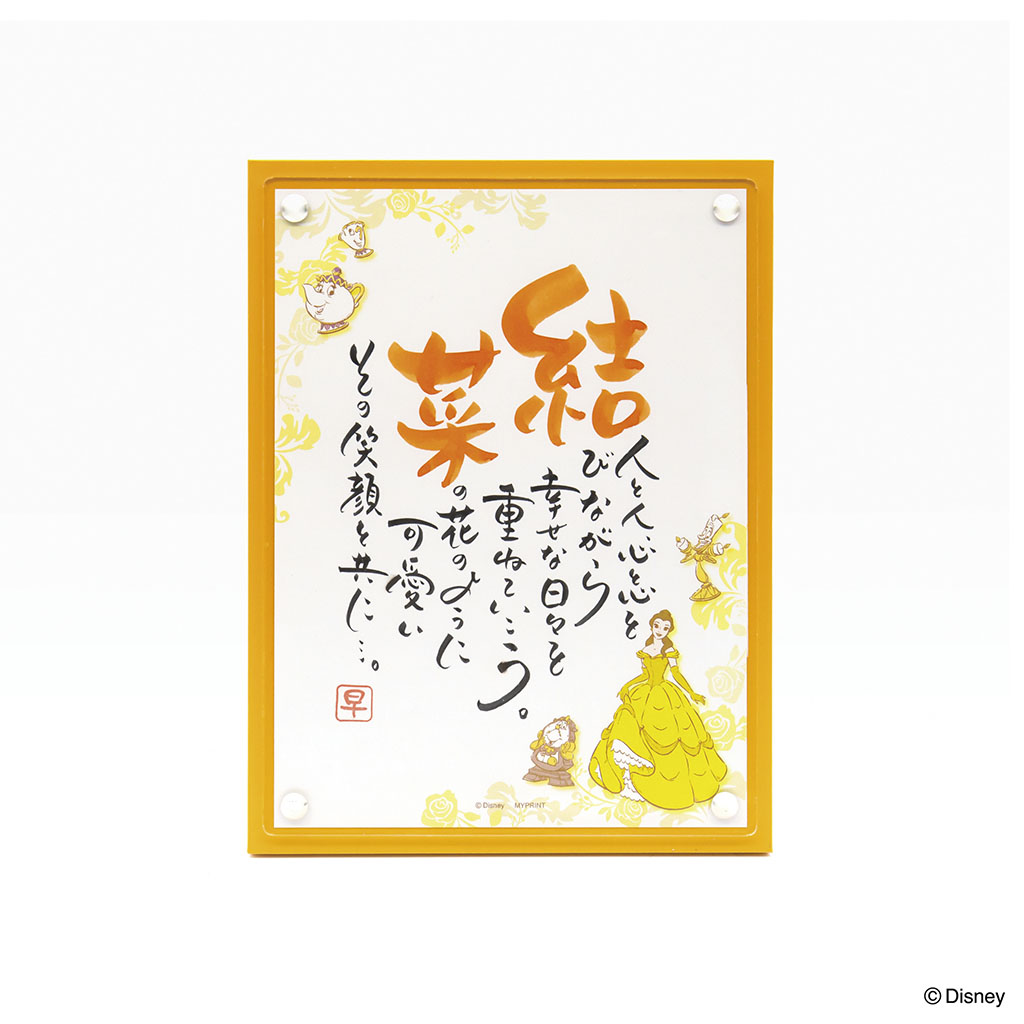 人と人心と心を
結びながら
幸せな日々を
重ねていこう。
菜の花のように
可愛い
その笑顔と共に…。
早
© Disney MYPRINT
© Disney